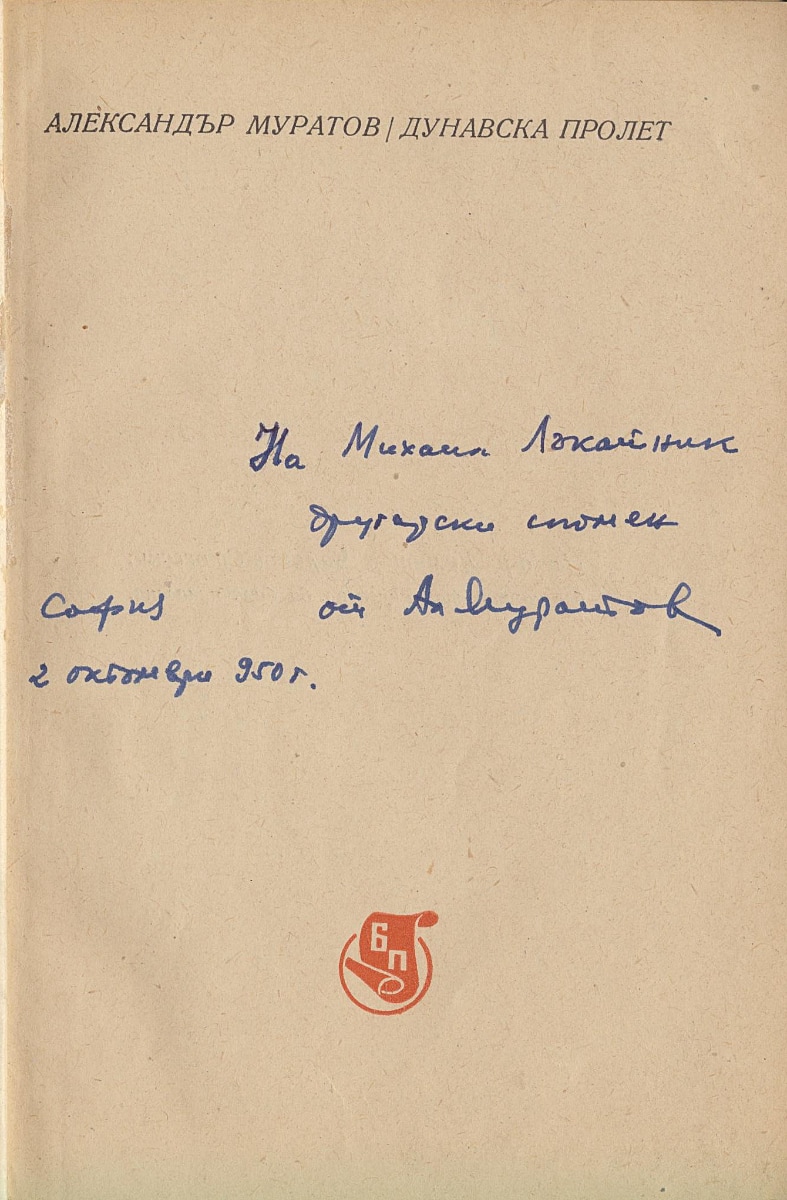 АЛЕКСАНДЪР МУРАТОВ / ДУНАВСКА ПРОЛЕТ
На Михаил Лъкатник
другарски спомен
София от Ал Муратов
2 октомври 950 г.
БП